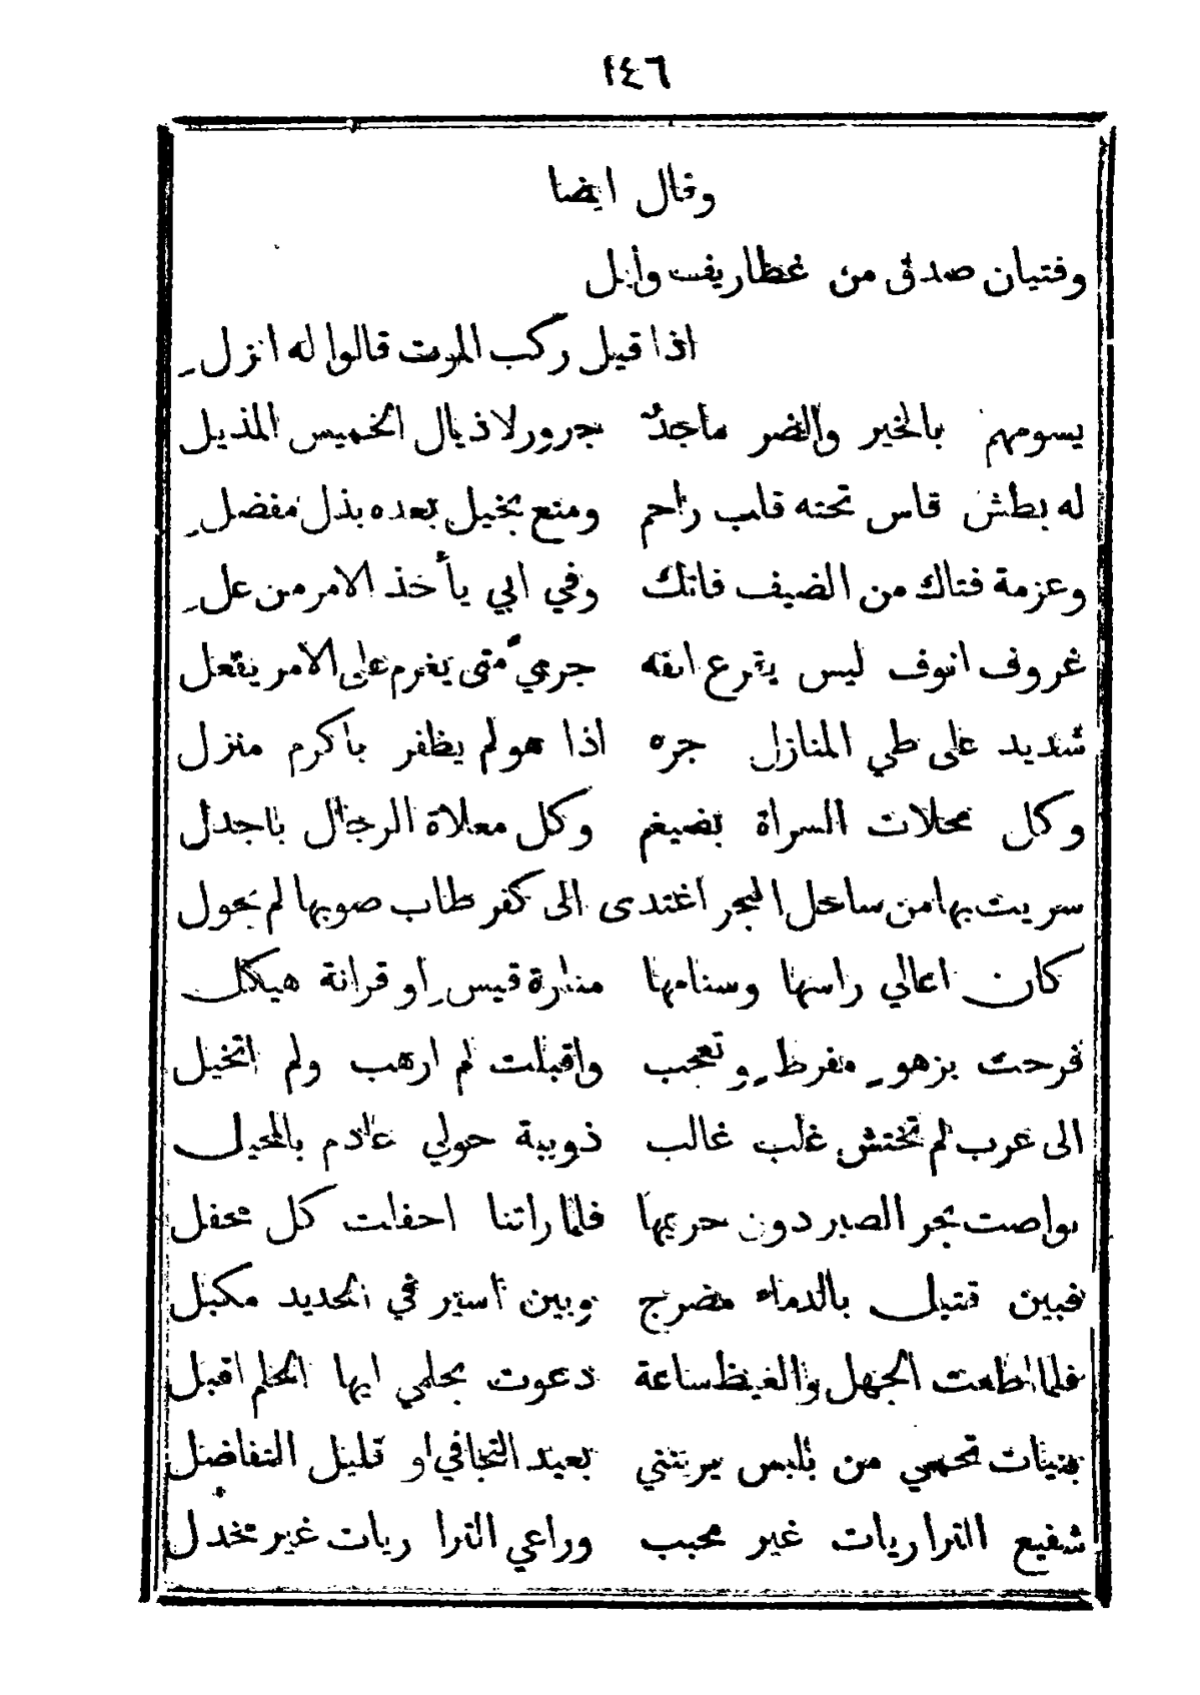 ١٤٦
وقال ايضا
وفتيان صدق من غطاريف وأيل
اذا قيل ركب الموت قالوا له انزل
يسومهم بالخير والضر ماجد جرور لاذيال الخميس المذيل
له بطش قاس تحته قلب راحم ومنع بخيل بعده بذل مفضل
وعزمة فتاك من الضيف فاتك وفي ابي يأخذ الامر من عل
غروف انوف ليس يقرع انفه جري متى يغرم على الامر يفعل
شديد على طي المنازل جره اذا هو لم يظفر باكرم منزل
وكل محلات السراة بضيغم وكل معلاة الرجال باجدل
سريت بها من ساحل البحر اغتدى الى كفر طاب صوبها لم يحول
كان اعالي راسها وسنامها منارة قيس او قرانة هيكل
فرحت بزهو مفرط وتعجب واقبلت لم ارهب ولم اتخيل
الى عرب لم تختش غلب غالب ذويبة حولي عادم بالمحيل
تواصت بجر الصبر دون حريمها فلما راتنا احفلت كل محفل
فبين قتيل بالدماء مضرج وبين اسير في الحديد مكبل
فلما اطعت الجهل والغيظ ساعة دعوت بحلمي ايها الحلم اقبل
بنيات تحمي من يرتني بعيد التجافي او قليل التفاضل
شفيع الترا ريات غير محبب وراعي الترا ريات غير مخدل